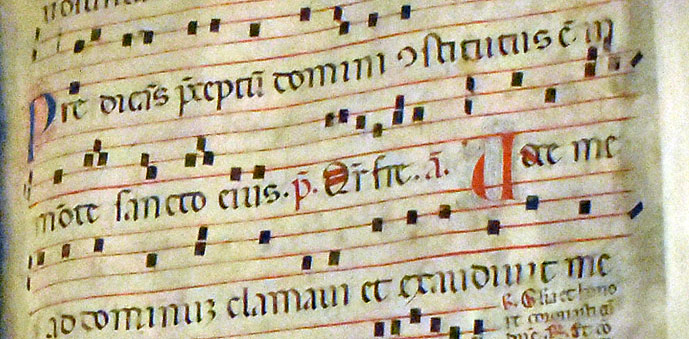 Pre dicās p̄ceptū domini ꝯstitutus ē in
mōte sancto eius. p̄. Qr̄ fre. ā. Uoce me
ad dominuz clamaui et exaudiuit me